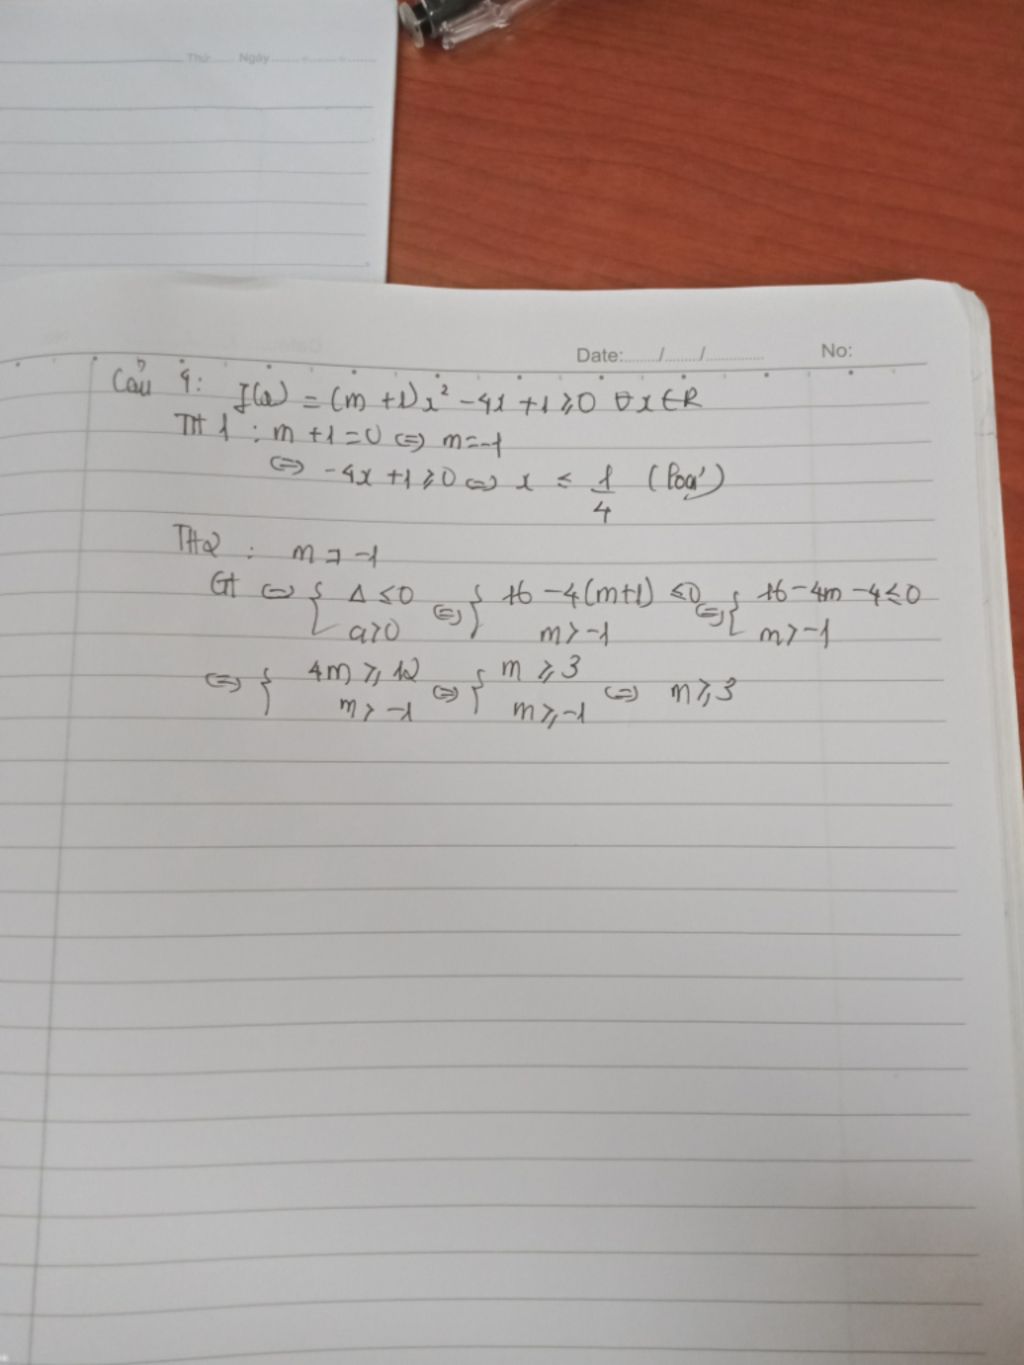 Thứ ....... Ngày ....................
Date: ......./......./............. No:
Câu 4: f(x) = (m + 1)x² - 4x + 1 ⩾ 0 ∀x ∈ R
TH 1 : m + 1 = 0 ⇔ m = -1
⇔ -4x + 1 ⩾ 0 ⇔ x ≤ 1/4 (loại)
TH2 : m ≠ -1
Gt ⇔ { Δ ≤ 0 ⇔ { 16 - 4(m+1) ≤ 0 ⇔ { 16 - 4m - 4 ≤ 0
a > 0 m > -1 m > -1
⇔ { 4m ⩾ 12 ⇔ { m ⩾ 3 ⇔ m ⩾ 3
m > -1 m ⩾ -1